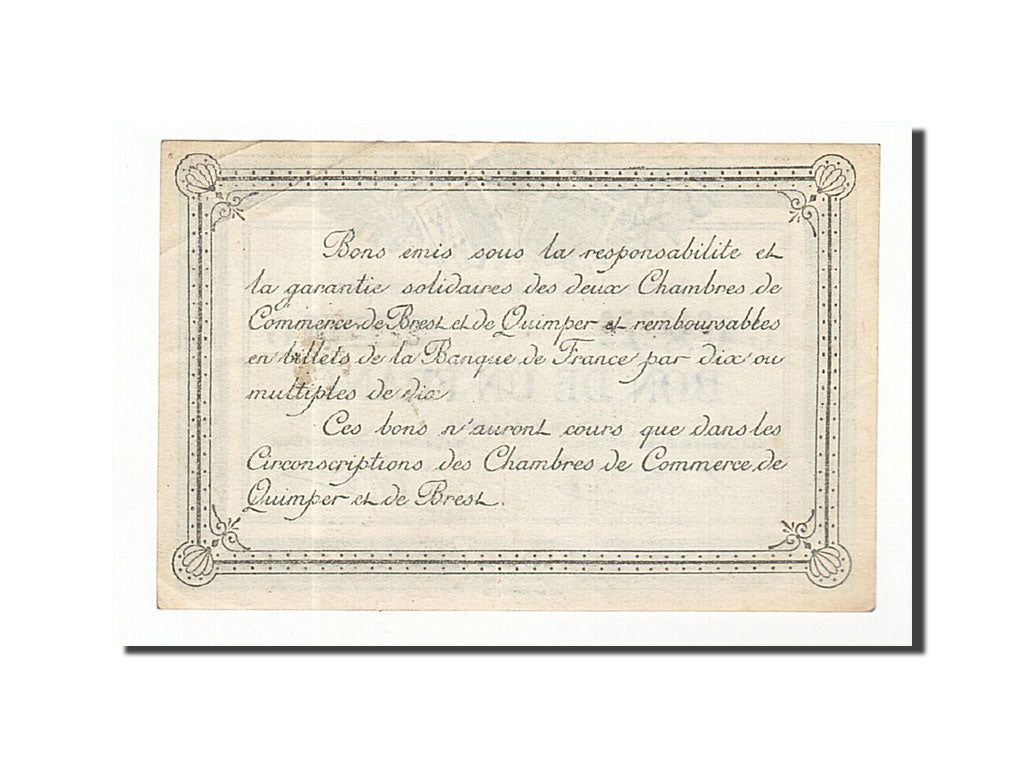 Bons emis sous la responsabilite et
la garantie solidaires des deux Chambres de
Commerce de Brest et de Quimper et remboursables
en billets de la Banque de France par dix ou
multiples de dix
Ces bons n'auront cours que dans les
Circonscriptions des Chambres de Commerce de
Quimper et de Brest.